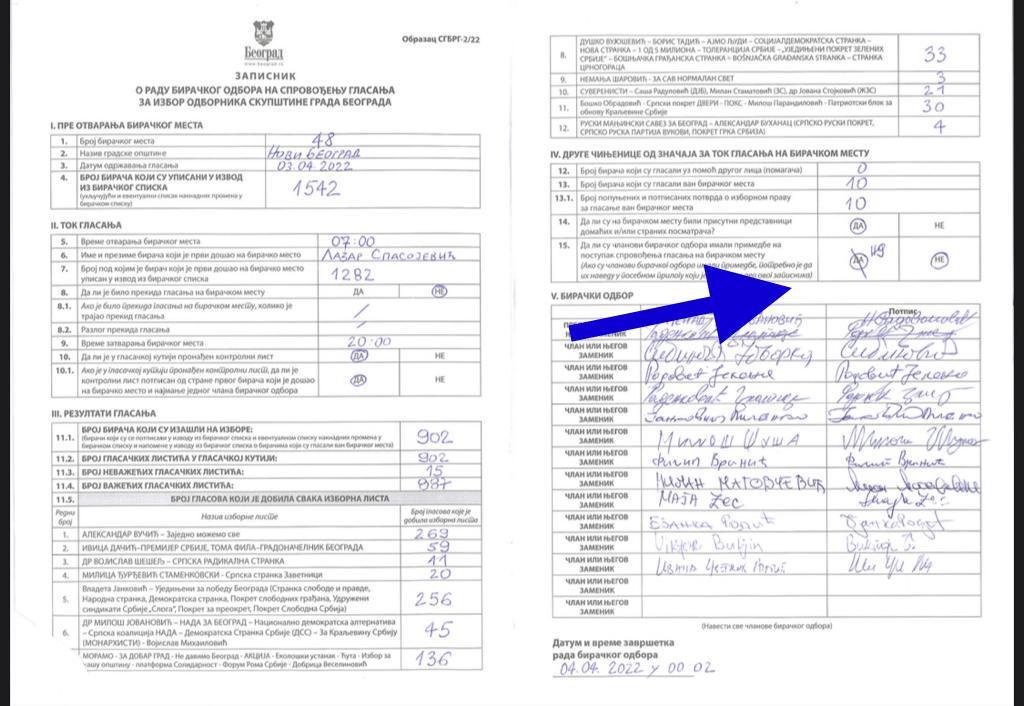 Образац СГБРГ-2/22
Београд
www.beograd.rs
ЗАПИСНИК
О РАДУ БИРАЧКОГ ОДБОРА НА СПРОВОЂЕЊУ ГЛАСАЊА
ЗА ИЗБОР ОДБОРНИКА СКУПШТИНЕ ГРАДА БЕОГРАДА
I. ПРЕ ОТВАРАЊА БИРАЧКОГ МЕСТА
1. Број бирачког места 48
2. Назив градске општине НОВИ БЕОГРАД
3. Датум одржавања гласања 03.04.2022
4. БРОЈ БИРАЧА КОЈИ СУ УПИСАНИ У ИЗВОД
ИЗ БИРАЧКОГ СПИСКА 1542
(укључујући и евентуални списак накнадних промена у
бирачком списку)
II. ТОК ГЛАСАЊА
5. Време отварања бирачког места 07:00
6. Име и презиме бирача који је први дошао на бирачко место ЛАЗАР СПАСОЈЕВИЋ
7. Број под којим је бирач који је први дошао на бирачко место
уписан у извод из бирачког списка 1282
8. Да ли је било прекида гласања на бирачком месту ДА НЕ
8.1. Ако је било прекида гласања на бирачком месту, колико је
трајао прекид гласања /
8.2. Разлог прекида гласања /
9. Време затварања бирачког места 20:00
10. Да ли је у гласачкој кутији пронађен контролни лист ДА НЕ
10.1. Ако је у гласачкој кутији пронађен контролни лист, да ли је
контролни лист потписан од стране првог бирача који је дошао
на бирачко место и најмање једног члана бирачког одбора ДА НЕ
III. РЕЗУЛТАТИ ГЛАСАЊА
11.1. БРОЈ БИРАЧА КОЈИ СУ ИЗАШЛИ НА ИЗБОРЕ:
(бирачи који су се потписали у изводу из бирачког списка и евентуалном списку накнадних промена у
бирачком списку и напомене у изводу из бирачког списка о бирачима који су гласали ван бирачког места) 902
11.2. БРОЈ ГЛАСАЧКИХ ЛИСТИЋА У ГЛАСАЧКОЈ КУТИЈИ: 902
11.3. БРОЈ НЕВАЖЕЋИХ ГЛАСАЧКИХ ЛИСТИЋА: 15
11.4. БРОЈ ВАЖЕЋИХ ГЛАСАЧКИХ ЛИСТИЋА: 887
11.5. БРОЈ ГЛАСОВА КОЈИ ЈЕ ДОБИЛА СВАКА ИЗБОРНА ЛИСТА
Редни број Назив изборне листе Број гласова које је добила изборна листа
1. АЛЕКСАНДАР ВУЧИЋ – Заједно можемо све 269
2. ИВИЦА ДАЧИЋ-ПРЕМИЈЕР СРБИЈЕ, ТОМА ФИЛА-ГРАДОНАЧЕЛНИК БЕОГРАДА 59
3. ДР ВОЈИСЛАВ ШЕШЕЉ – СРПСКА РАДИКАЛНА СТРАНКА 11
4. МИЛИЦА ЂУРЂЕВИЋ СТАМЕНКОВСКИ - Српска странка Заветници 20
5. Владета Јанковић – Уједињени за победу Београда (Странка слободе и правде,
Народна странка, Демократска странка, Покрет слободних грађана, Удружени
синдикати Србије „Слога“, Покрет за преокрет, Покрет Слободна Србија) 256
6. ДР МИЛОШ ЈОВАНОВИЋ – НАДА ЗА БЕОГРАД – Национално демократска алтернатива
– Српска коалиција НАДА – Демократска Странка Србије (ДСС) – За Краљевину Србију
(МОНАРХИСТИ) - Војислав Михаиловић 45
МОРАМО - ЗА ДОБАР ГРАД - Не давимо Београд - АКЦИЈА - Еколошки устанак - Ћута - Избор за
нашу општину - платформа Солидарност - Форум Рома Србије - Добрица Веселиновић 136
8. ДУШКО ВУЈОШЕВИЋ – БОРИС ТАДИЋ – АЈМО ЉУДИ – СОЦИЈАЛДЕМОКРАТСКА СТРАНКА –
НОВА СТРАНКА – 1 ОД 5 МИЛИОНА – ТОЛЕРАНЦИЈА СРБИЈЕ – „УЈЕДИЊЕНИ ПОКРЕТ ЗЕЛЕНИХ
СРБИЈЕ“ – БОШЊАЧКА ГРАЂАНСКА СТРАНКА – BOŠNJAČKA GRAĐANSKA STRANKA – СТРАНКА
ЦРНОГОРАЦА 33
9. НЕМАЊА ШАРОВИЋ - ЗА САВ НОРМАЛАН СВЕТ 3
10. СУВЕРЕНИСТИ – Саша Радуловић (ДЈБ), Милан Стаматовић (ЗС), др Јована Стојковић (ЖЗС) 21
11. Бошко Обрадовић - Српски покрет ДВЕРИ - ПОКС - Милош Парандиловић - Патриотски блок за
обнову Краљевине Србије 30
12. РУСКИ МАЊИНСКИ САВЕЗ ЗА БЕОГРАД – АЛЕКСАНДАР БУХАНАЦ (СРПСКО РУСКИ ПОКРЕТ,
СРПСКО РУСКА ПАРТИЈА ВУКОВИ, ПОКРЕТ ГРКА СРБИЈА) 4
IV. ДРУГЕ ЧИЊЕНИЦЕ ОД ЗНАЧАЈА ЗА ТОК ГЛАСАЊА НА БИРАЧКОМ МЕСТУ
12. Број бирача који су гласали уз помоћ другог лица (помагача) 0
13. Број бирача који су гласали ван бирачког места 10
13.1. Број попуњених и потписаних потврда о изборном праву
за гласање ван бирачког места 10
14. Да ли су на бирачком месту били присутни представници
домаћих и/или страних посматрача? ДА НЕ
15. Да ли су чланови бирачког одбора имали примедбе на
поступак спровођења гласања на бирачком месту ДА НЕ
(Ако су чланови бирачког одбора имали примедбе, потребно је да
их наведу у посебном прилогу који је
V. БИРАЧКИ ОДБОР
Потпис
ЗАМЕНИК
ЧЛАН ИЛИ ЊЕГОВ
ЗАМЕНИК
ЧЛАН ИЛИ ЊЕГОВ
ЗАМЕНИК
ЧЛАН ИЛИ ЊЕГОВ
ЗАМЕНИК
ЧЛАН ИЛИ ЊЕГОВ
ЗАМЕНИК
ЧЛАН ИЛИ ЊЕГОВ
ЗАМЕНИК МИЛОШ ШУША
ЧЛАН ИЛИ ЊЕГОВ
ЗАМЕНИК Филип Вринић
ЧЛАН ИЛИ ЊЕГОВ
ЗАМЕНИК МИЛАН
ЧЛАН ИЛИ ЊЕГОВ
ЗАМЕНИК МАЈА ЗЕС
ЧЛАН ИЛИ ЊЕГОВ
ЗАМЕНИК
ЧЛАН ИЛИ ЊЕГОВ
ЗАМЕНИК
ЧЛАН ИЛИ ЊЕГОВ
ЗАМЕНИК
ЧЛАН ИЛИ ЊЕГОВ
ЗАМЕНИК
ЧЛАН ИЛИ ЊЕГОВ
ЗАМЕНИК
(Навести све чланове бирачког одбора)
Датум и време завршетка
рада бирачког одбора
04.04.2022 у 00 02